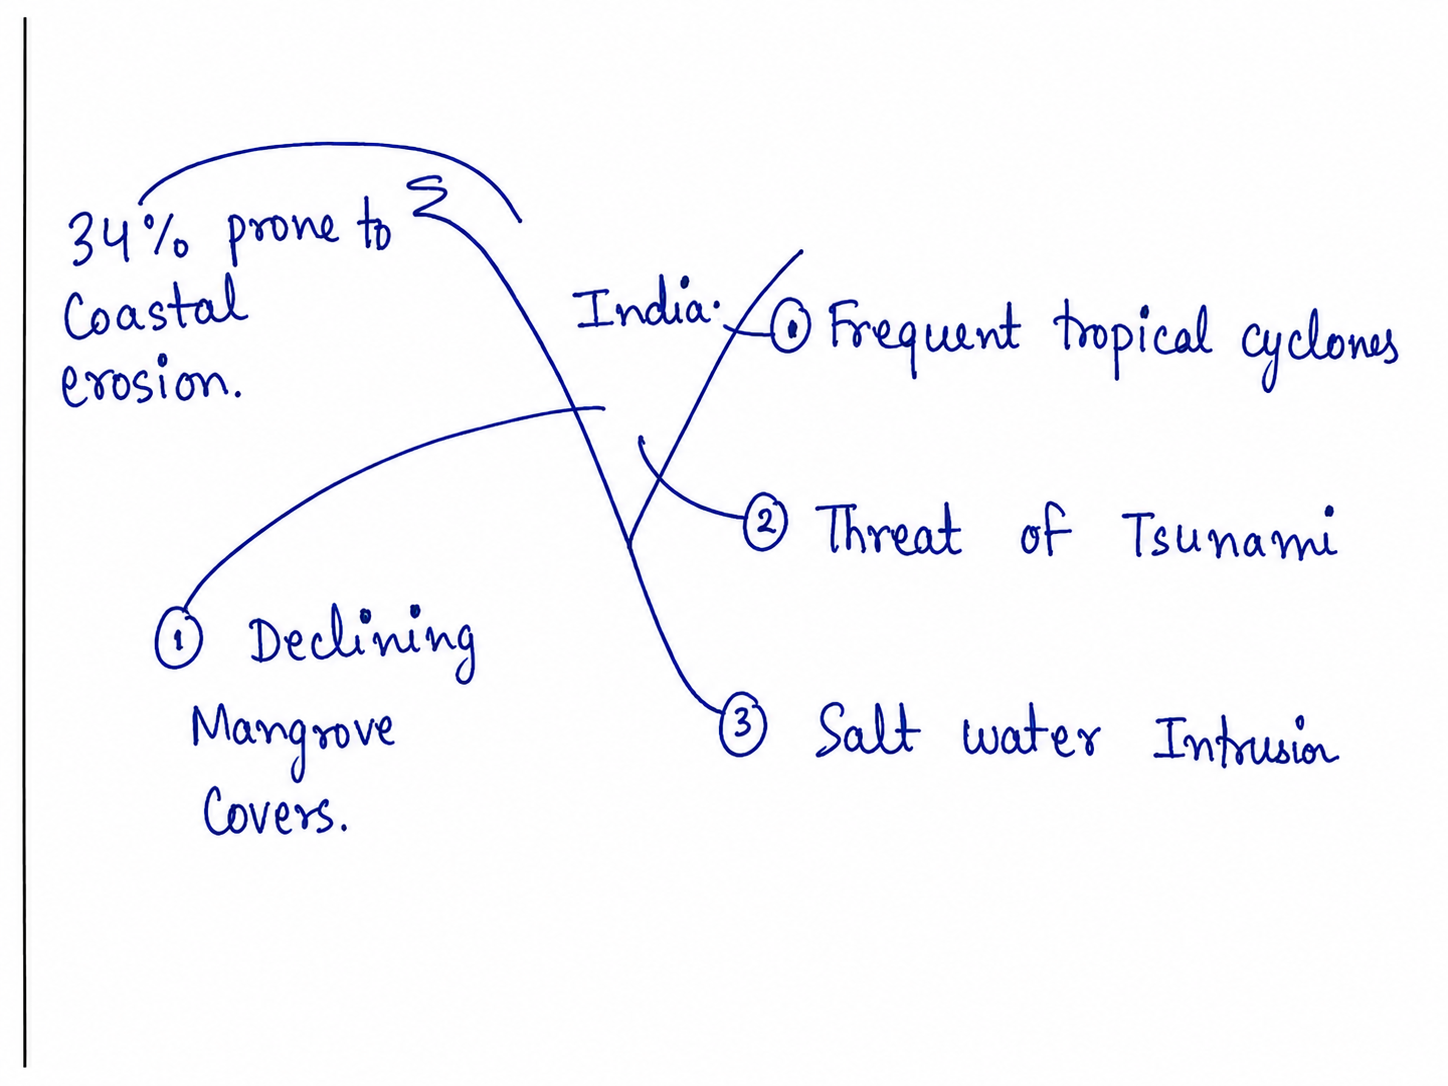 34% prone to
Coastal
erosion.
India.
① Frequent tropical cyclones
② Threat of Tsunami
③ Salt water Intrusion
① Declining
Mangrove
Covers.